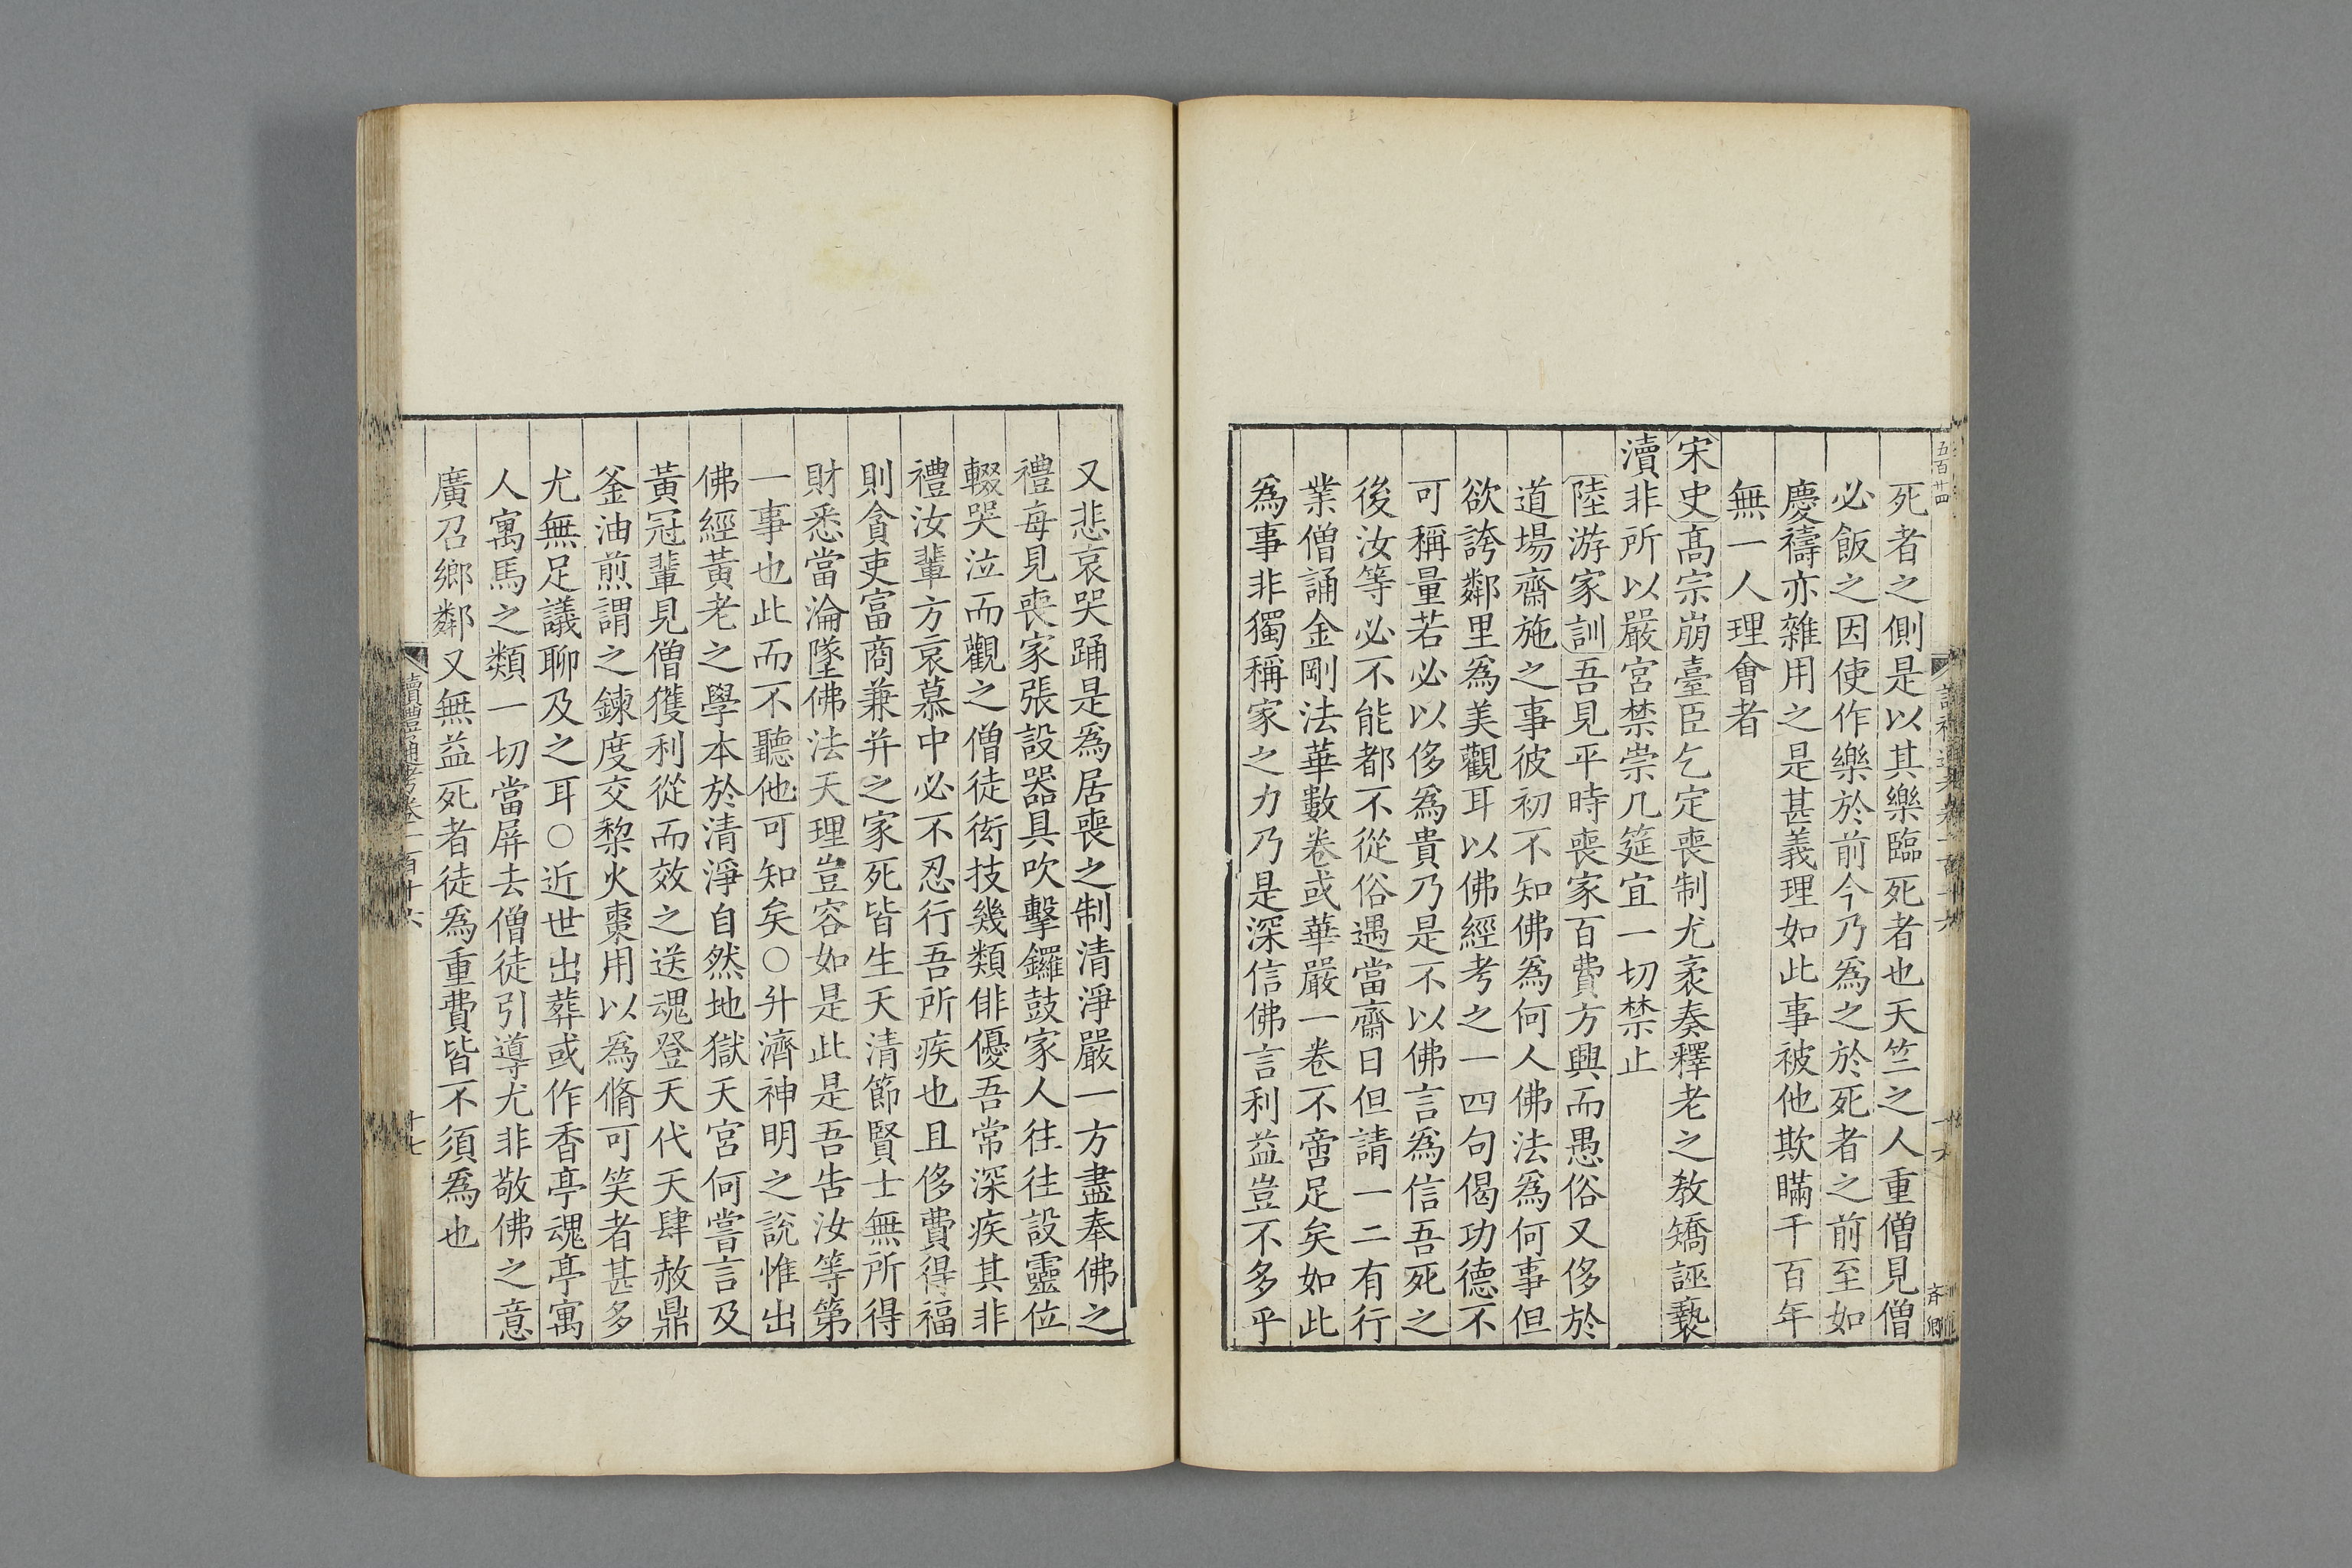 死者之側是以其樂臨死者也天竺之人重僧見僧
必飯之因使作樂於前今乃爲之於死者之前至如
慶禱亦雜用之是甚義理如此事被他欺瞞千百年
無一人理會者
宋史高宗崩臺臣乞定喪制尤袤奏釋老之敎矯誣褻
瀆非所以嚴宮禁崇几筵宜一切禁止
陸游家訓吾見平時喪家百費方興而愚俗又侈於
道場齋施之事彼初不知佛爲何人佛法爲何事但
欲誇鄰里爲美觀耳以佛經考之一四句偈功德不
可稱量若必以侈爲貴乃是不以佛言爲信吾死之
後汝等必不能都不從俗遇當齋日但請一二有行
業僧誦金剛法華數卷或華嚴一卷不啻足矣如此
爲事非獨稱家之力乃是深信佛言利益豈不多乎
又悲哀哭踊是爲居喪之制清淨嚴一方盡奉佛之
禮每見喪家張設器具吹擊鑼鼓家人往往設靈位
輟哭泣而觀之僧徒衒技幾類俳優吾常深疾其非
禮汝輩方哀慕中必不忍行吾所疾也且侈費得福
則貪吏富商兼并之家死皆生天清節賢士無所得
財悉當淪墜佛法天理豈容如是此是吾告汝等第
一事也此而不聽他可知矣○升濟神明之說惟出
佛經黃老之學本於清淨自然地獄天宮何嘗言及
黃冠輩見僧獲利從而效之送魂登天代天肆赦鼎
釜油煎謂之鍊度交棃火棗用以爲脩可笑者甚多
尤無足議聊及之耳○近世出葬或作香亭魂亭寓
人寓馬之類一切當屏去僧徒引導尤非敬佛之意
廣召鄉鄰又無益死者徒爲重費皆不須爲也
讀禮通考卷一百十六
十七